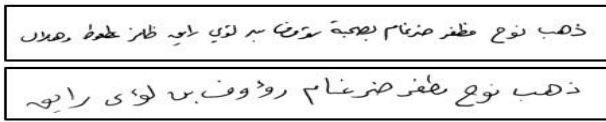 ذهب نوح مظفر ضرغام بصحبة رؤوف بن لؤي رايق ظافر عطوط وهلال
ذهب نوح مظفر ضرغام رؤوف بن لؤى رايق